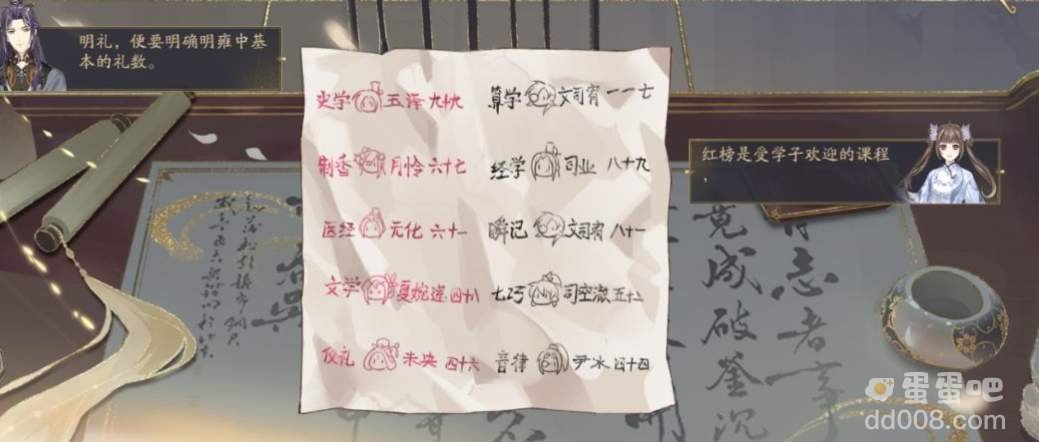 明礼，便要明确明雍中基
本的礼数。
史学 五泽 九十九
制香 月怜 六十七
医经 元化 六十一
文学 夏婉遥 四十八
仪礼 未央 四十六
算学 文司宥 一一七
经学 司业 八十九
瞬记 文司宥 八十一
七巧 司空澈 五十二
音律 尹冰 四十四
红榜是受学子欢迎的课程
有志者事
竟成破釜沉
蛋蛋吧
dd008.com